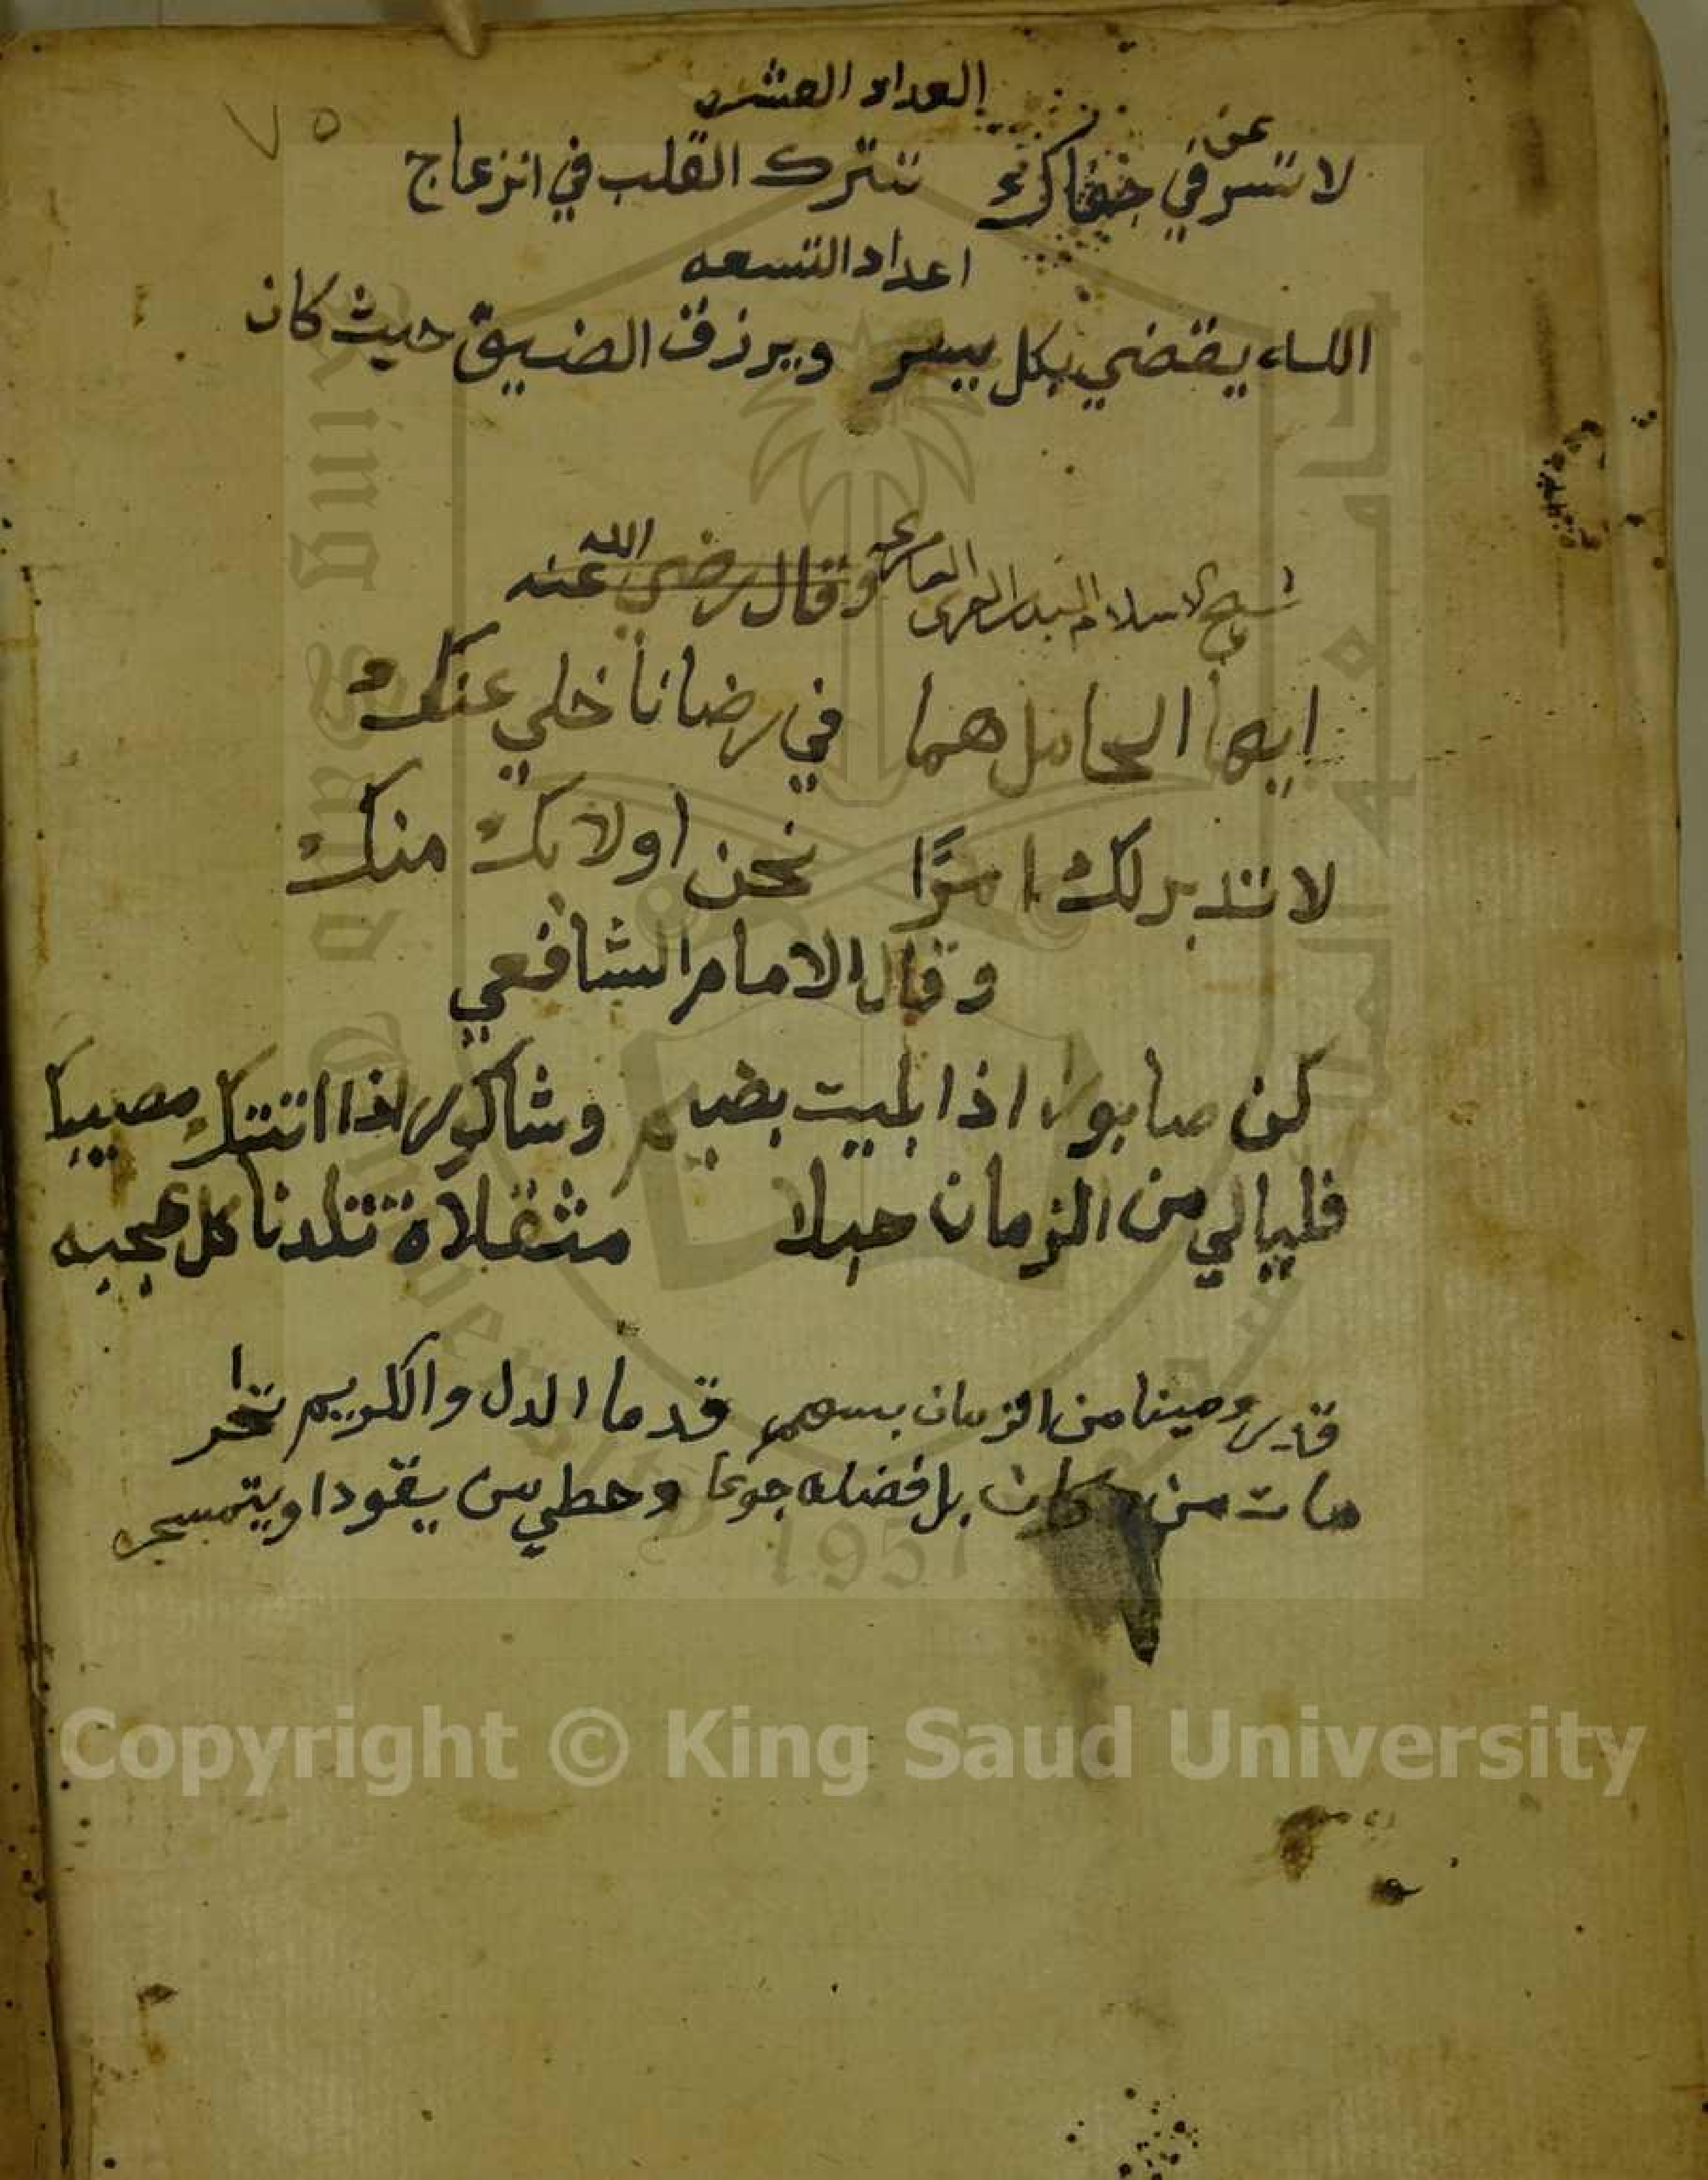 العداد العشر
٧٥
عن
لا تسرفي خفاكر تترك القلب في انزعاج
اعداد التسعه
الله يقضي بكل يسر ويرزق الضيق حيث كان
شيخ الاسلام وقال رضي الله عنه
ايها الحامل هما في رضانا خلي عنك
لا تدبر لك امرًا نحن اولا بك منك
وقال الامام الشافعي
كن صابورا اذا بليت بضيم وشاكورا اذا اتتك مصيبا
فليالي من الزمان حبلا مثقلاة تلدنا كل عجبه
قد رمينا من الزمان بسهم قدما الدل والكريم تخرا
مات من كان بل فضله جوعا وحطي من يقودا ويتمسخر
Copyright © King Saud University
King Saud University
جامعة الملك سعود
1957